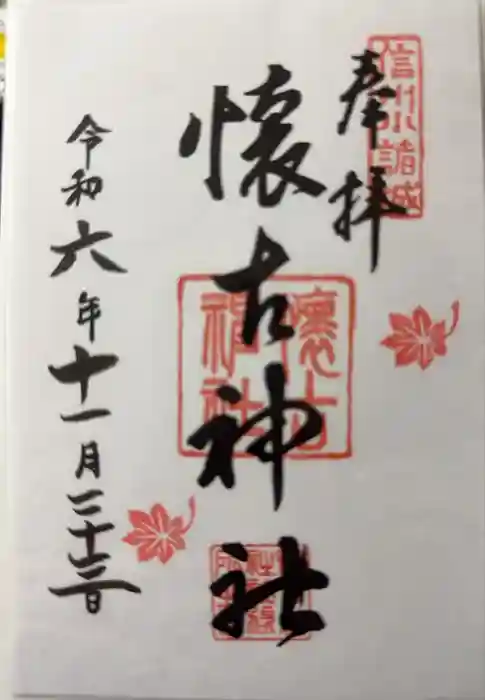 信州小諸城
奉拝
懐古神社
懐古神社
令和六年十一月二十三日